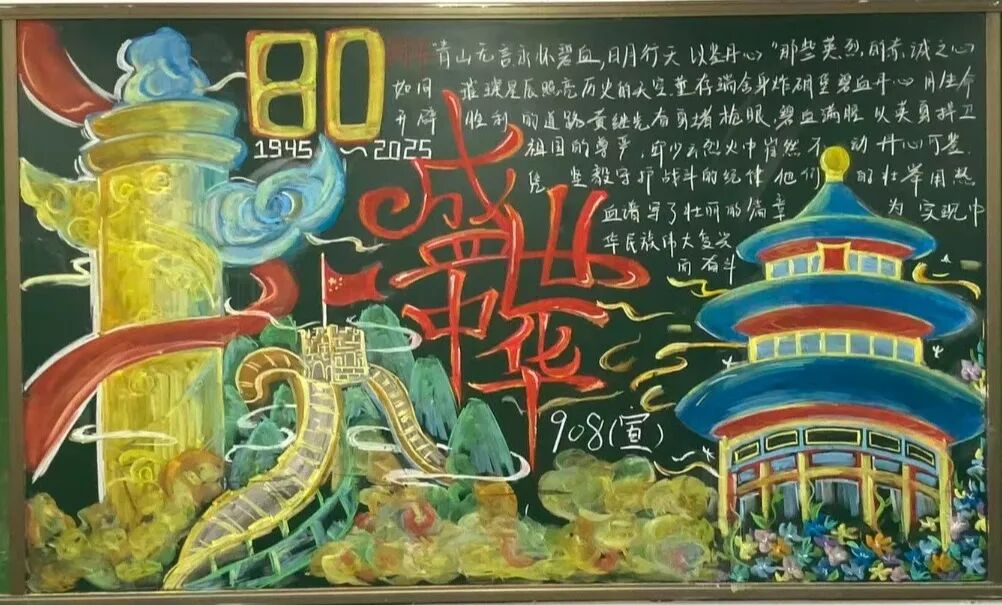 80周年
1945~2025
"青山无言永怀碧血,日月行天以鉴丹心"那些英烈,的赤诚之心
如同璀璨星辰照亮历史的天空董存瑞舍身炸碉堡碧血丹心用生命
开辟胜利的道路黄继光有勇堵枪眼,碧血满腔以类身捍卫
祖国的尊严,邱少云烈火中岿然不动丹心可鉴,
凭坚毅守护战斗的纪律他们的壮举用热
血谱写了壮丽的篇章为实现中
华民族伟大复兴
而奋斗
盛世
中华
908(宣)